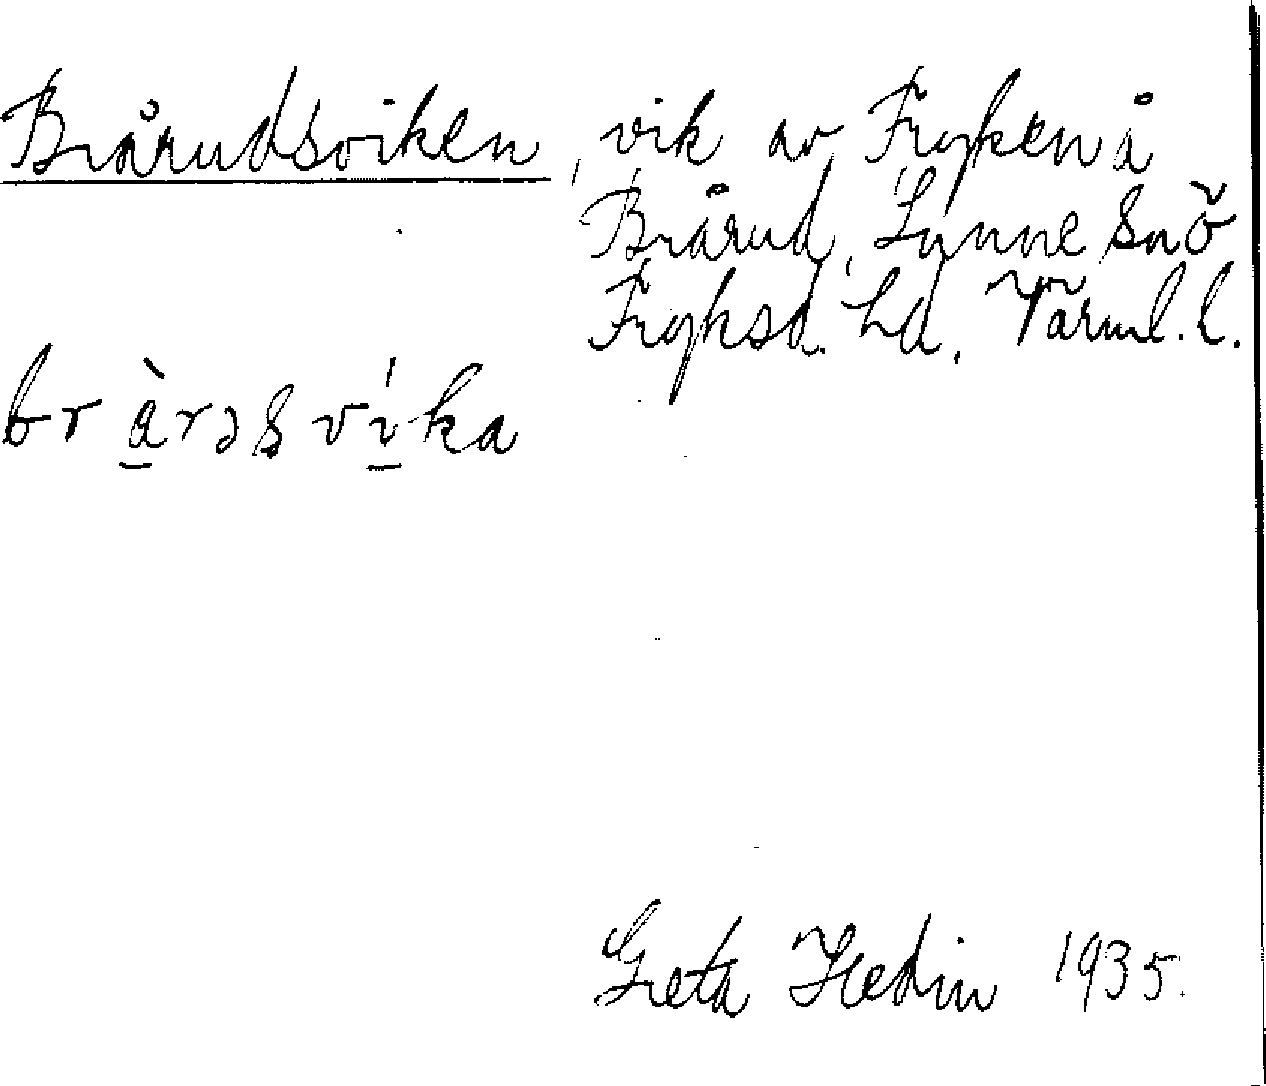 Brårudsviken, vik av Fryken å
Brårud, Lynne sn ö
Fryksd. hd. Värml. l.
bràrəsvíka
Greta Hedin 1935.